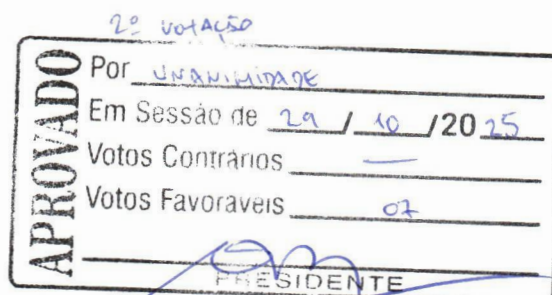 2º VOTAÇÃO
APROVADO
Por UNANIMIDADE
Em Sessão de 29 / 10 /20 25
Votos Contrários —
Votos Favoráveis 07
PRESIDENTE